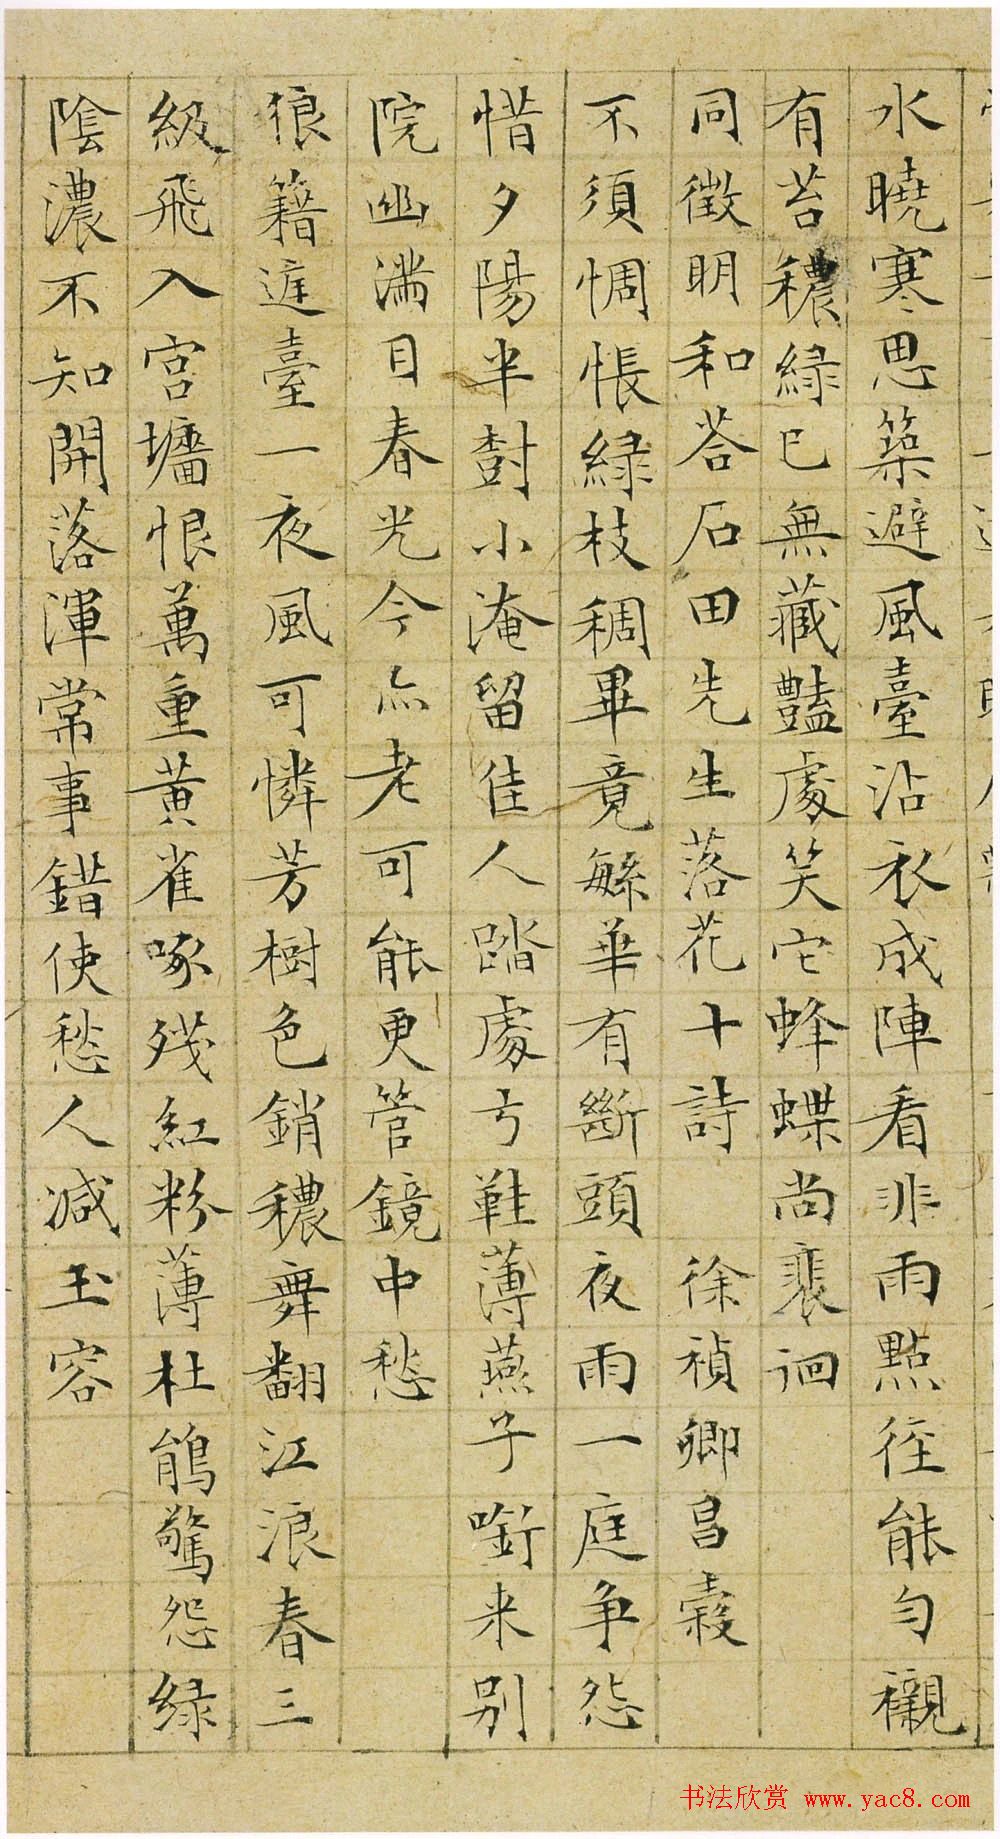 水曉寒思築避風臺沾衣成陣看非雨點徑能勻襯
有苔穠綠已無藏豔處笑它蜂蝶尚裴徊
同徵明和荅石田先生落花十詩 徐禎卿昌穀
不須惆悵綠枝稠畢竟緐華有斷頭夜雨一庭争怨
惜夕陽半樹小淹留佳人踏處弓鞋薄燕子啣来別
院幽滿目春光今亦老可能更管鏡中愁
狼籍庭臺一夜風可憐芳樹色銷穠舞翻江浪春三
級飛入宮墻恨萬重黄雀啄殘紅粉薄杜鵑驚怨绿
陰濃不知開落渾常事錯使愁人减玉容
书法欣赏 www.yac8.com